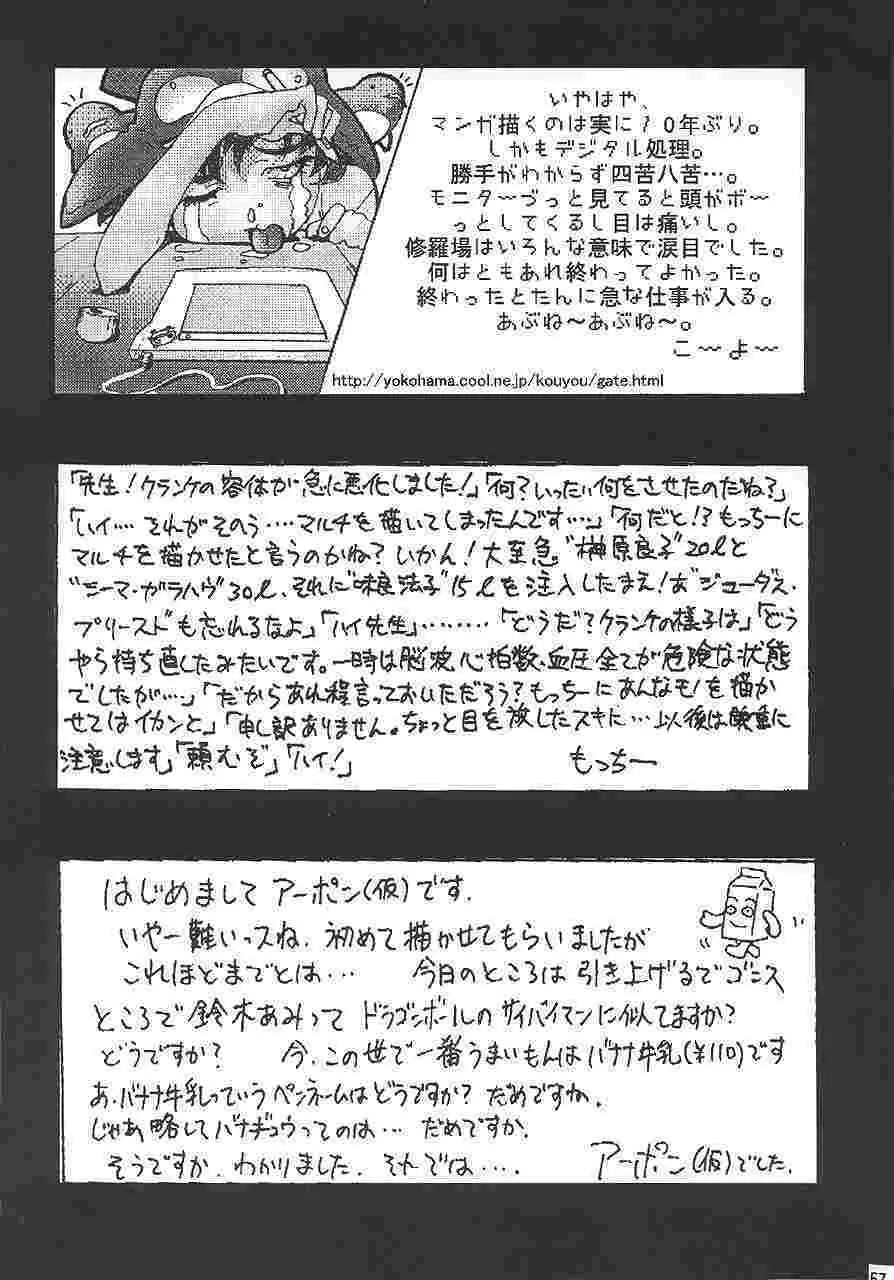 いやはや、
マンガ描くのは実に10年ぶり。
しかもデジタル処理。
勝手がわからず四苦八苦…。
モニターづっと見てると頭がボ〜
っとしてくるし目は痛いし。
修羅場はいろんな意味で涙目でした。
何はともあれ終わってよかった。
終わったとたんに急な仕事が入る。
あぶね〜あぶね〜。
こ〜よ〜
http://yokohama.cool.ne.jp/kouyou/gate.html
「先生!クランケの容体が急に悪化しました!」「何?いったい何をさせたのだね?」
「ハイ…それがそのう…マルチを描いてしまったんです…」「何だと!?もっちーに
マルチを描かせたと言うのかね?いかん!大至急"榊原良子"20lと
"ニーマ・ガラハヴ"30l、それに"味良法子"15lを注入したまえ!あ"ジューダス・
プリースト"も忘れるなよ」「ハイ先生」………「どうだ?クランケの様子は」「どう
やら持ち直したみたいです。一時は脳波、心拍数、血圧全てが危険な状態
でしたが…」「だからあれ程言っておいただろう?もっちーにあんなモノを描か
せてはイカンと」「申し訳ありません。ちょっと目を放したスキに…以後は慎重に
注意します」「頼むぞ」「ハイ!」
もっちー
はじめまして アーポン(仮)です.
いやー難いっスね. 初めて描かせてもらいましたが
これほどまでとは… 今日のところは引き上げるでゴンス
ところで鈴木あみって ドラゴンボールのサイバイマンに似てますか?
どうですか? 今、この世で一番うまいもんはバナナ牛乳(¥110)です
あ、バナナ牛乳っていうペンネームはどうですか? だめですね.
じゃあ略してバナギュウってのは… だめですか.
そうですか. わかりました. それでは….
アーポン(仮)でした.